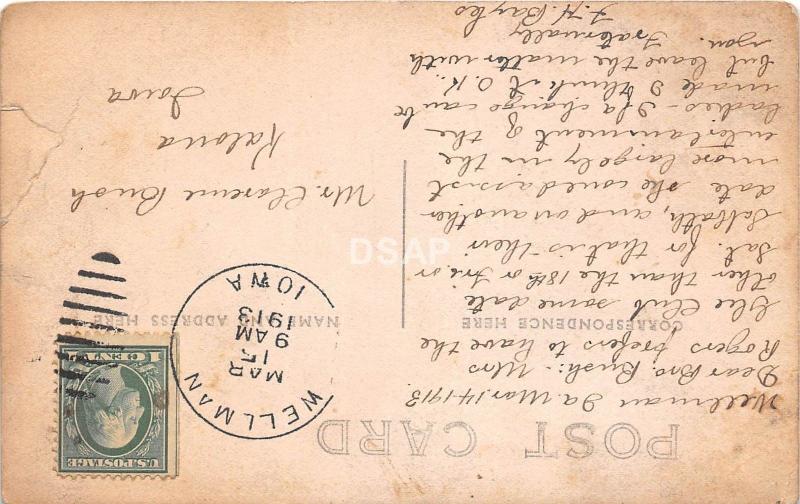 POST CARD
CORRESPONDENCE HERE
NAME AND ADDRESS HERE
Wellman Ia. Mar. 14-1913
Dear Bro. Bush:- Mrs
Rogers prefers to have the
Glee Club some date
other than the 18th or Fri. or
Sat. for that is their
Sabbath, and on another
date she could assist
more largely in the
entertainment of the
ladies - If a change can be
made I think it O.K.
but leave the matter with
you. Fraternally
F. H. Bayles
WELLMAN
MAR
15
9 AM
1913
IOWA
U.S. POSTAGE
1 CENT 1
Mr. Clarence Bush
Kalona
Iowa
DSAP